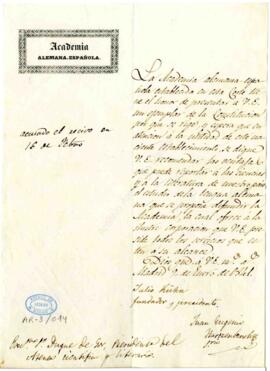 Academia
ALEMANA-ESPAÑOLA.
acusado el recivo en
16 de Febro
La Academia alemana espa-
ñola establecida en esta Corte tie-
ne el honor de presentar a V.E.
un ejemplar de la Constitucion
por que se rige, y espera que en
atencion a la utilidad de este na-
ciente establecimiento se digne
V.E. recomendar las ventajas
que puede reportar a las ciencias
y a la literatura de nuestro pais
el estudio de la lengua alemana
que se propone difundir la
Academia, la cual ofrece a la
ilustre corporacion que V.E. pre-
side todos los servicios que es-
ten a su alcance.
Dios gue. a V.E. ms. as.
Madrid de Enero de 1841.
Julio Kühn
fundador y presidente.
Juan Eugenio
Hartzenbusch
AR-3/014
Exmo. Sr. Duque de Presidente del
Ateneo cientifico y literario.